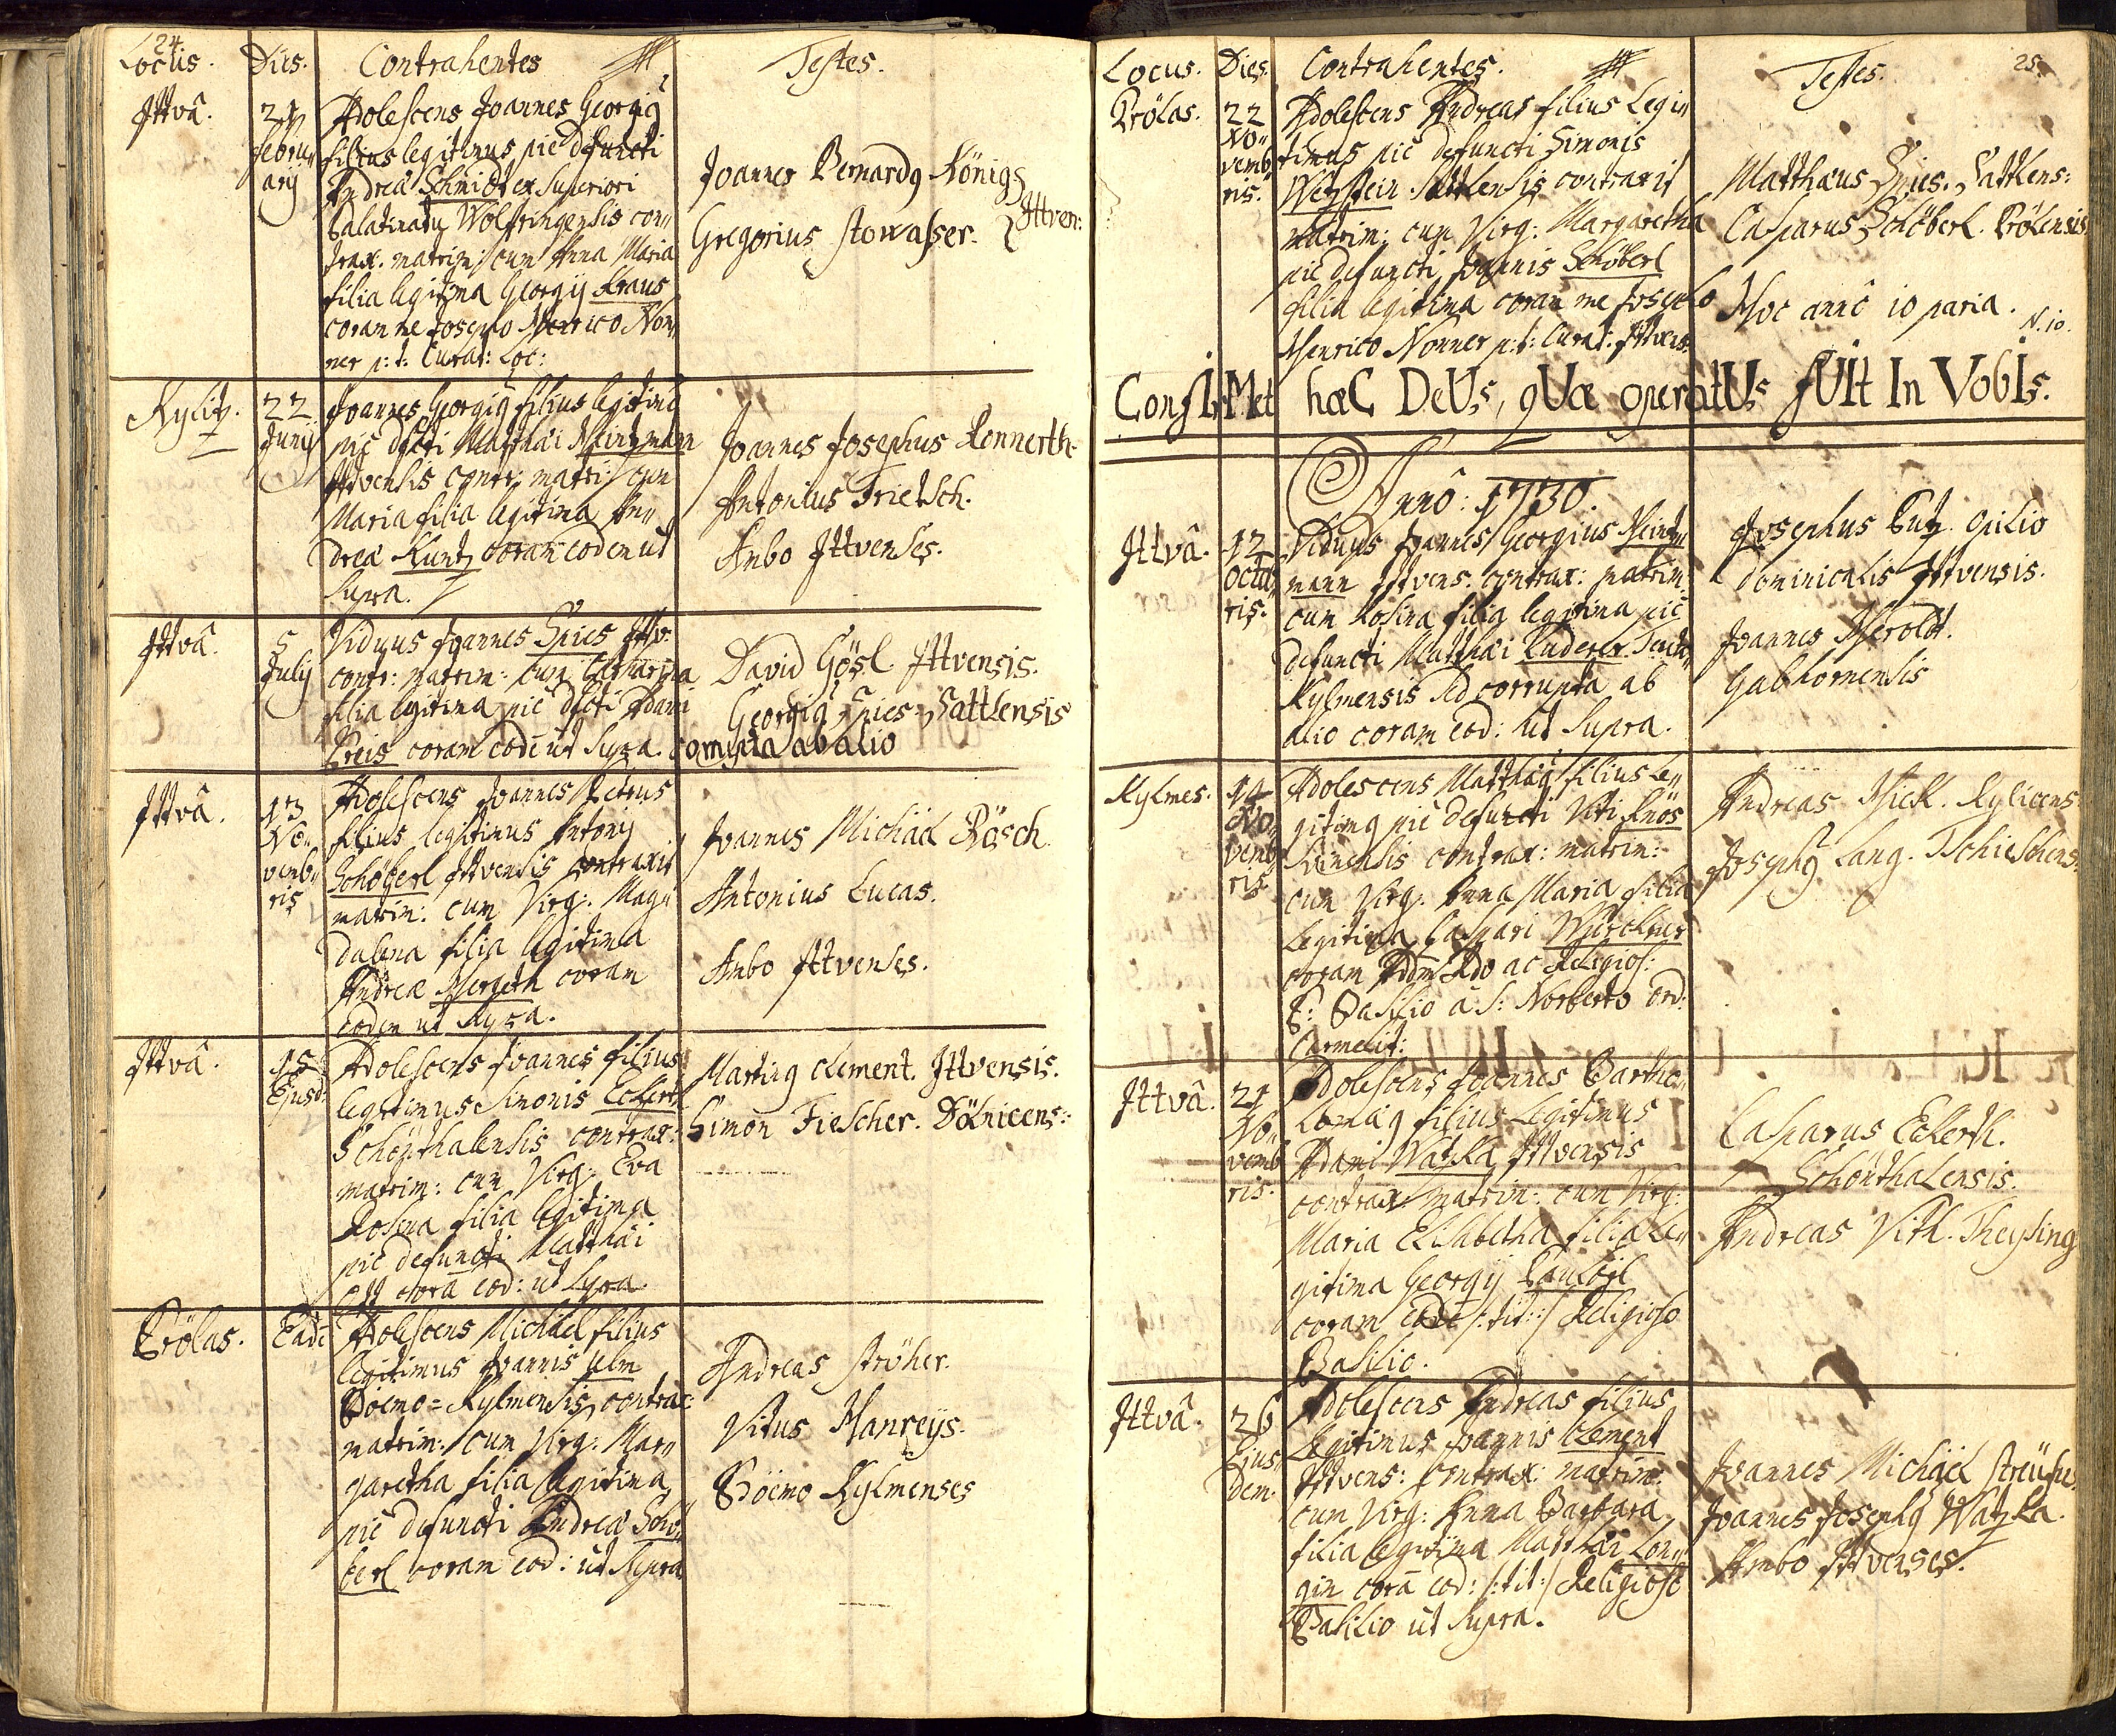 24.
Locus. Dies. Contrahentes Testes.
Ittvâ. 21 Adolescens Joannes Georgiq
februarij filius legitimus piè defuncti
Andreæ Schmidt ex Superiori
Palatinatu Wolfringensis con„
trax. matrim: cum Anna Maria
filia legitima Georgij Kraus
coram me Josepho Henrico Non„
ner p: t: Curat: Loc:
Joannes Bernardq König
Gregorius Stowasser. } Ittven:
Kylitz. 22 Junij
Joannes Georgiq filius legitimq
piè dfcti Matthæi Heintzmann
Ittvensis contr: matri: cum
Maria filia legitima An„
dreæ Kuntz coram eodem ut
supra.
Joannes Josephus Rennerth.
Antonius Frietsch.
Ambo Ittvenses.
Ittvâ. 5 July
Viduus Joannes Spies Ittv:
contr: matrim: cum Catharina
filia legitima piè dfcti Adami
Preis coram eodē ut supra. corrupta ab alio
David Gösl Ittvensis.
Georgiq Spies Sattlensis
Ittvâ. 13 No„
vemb„
ris
Adolescens Joannes Petrus
filius legitimus Antonij
Schöberl Ittvensis contraxit
matrim: cum Virg: Mag„
dalena filia legitima
Andreæ Hergeth coram
eodem ut supra.
Joannes Michäel Rösch
Antonius Lucas.
Ambo Ittvenses.
Ittvâ. 15 Ejusd:
Adolescens Joannes filius
legitimus Simonis Eckert
Schönthalensis contrax:
matrim: cum Virg: Eva
Rosina filia legitima
piè defuncti Matthæi
Ott corā eod: ut supra.
Martinq Clement. Ittvensis.
Simon Fiescher. Dölnicens:
Prölas. Eadē
Adolescens Michäel filius
legitimus Joannis Ulm
Böemo=Kylmensis contrax:
matrim: cum Virg: Mar„
garetha filia legitima
piè defuncti Andreæ Schö„
berl coram eod: ut Supra
Andreas Ströher.
Vitus Manreijs.
Böemo Kylmenses
25.
Locus. Dies. Contrahentes. Testes.
Prölas. 22
No„
vemb
ris.
Adolescens Andreas filius Legi„
timus piè defuncti Simonis
Wetzstein Sattlensis contraxit
matrim: cum Virg: Margaretha
piè defuncti Joannis Schöberl
filia legitima coram me Josepho
Henrico Nonner p: t: Curat: Ittvens:
Matthæus Spies. Sattlens:
Casparus Schöberl. Prölensis
Hoc annô 10 paria. N. 10.
ConfIrMet hæC DeUs, qUæ operatUs fUIt In VobIs.
Annô: 1730.
Ittvâ. 12
Octob
ris.
Viduus Joannes Georgius Heintz„
mann Ittvens. contrax: matrim:
cum Rosina filia legitima piè
defuncti Matthæi Ruderer Teuto„
Kylmensis sed corrupta ab
alio coram eod: ut supra.
Josephus Putz. opilio
dominicalis Ittvensis.
Joannes Heroldt.
Gabhornensis
Kylmes. 14
No„
vemb
ris
Adolescens Matthæiq filius Le„
gitimq piè defuncti Viti Knös
contrax: matrim:
cum Virg: Anna Maria filia
Legitima Caspari
coram Adm Rdo ac Religios:
P: Basilio à S: Norberto Ord:
Carmelit:
Andreas Hick. Kylicens:
Josephq Lang. Tschieschens:
Ittvâ. 21
No„
vemb
ris.
Adolescens Joannes Bartho„
lomæiq filius Legitimus
Adami Watzka Ittvensis
contrax: matrim: cum Virg:
Maria Elisabetha filia Le„
gitima Georgij Paulösl
coram eodē /: tit: :/ Religioso
Basilio.
Casparus Eckerth.
Schönthalensis.
Andreas Vitk. Theysing
Ittvâ. 26
Ejus„
dem.
Adolescens Andreas filius
Legitimus Joannis Clement
Ittvens: contrax: matrim:
cum Virg: Anna Barbara
filia legitima Matthæi Lon„
gin corā eod: /: tit: / Religioso
Basilio ut supra.
Joannes Michäel
Joannes Josephq Watzka.
Ambo Ittvenses.